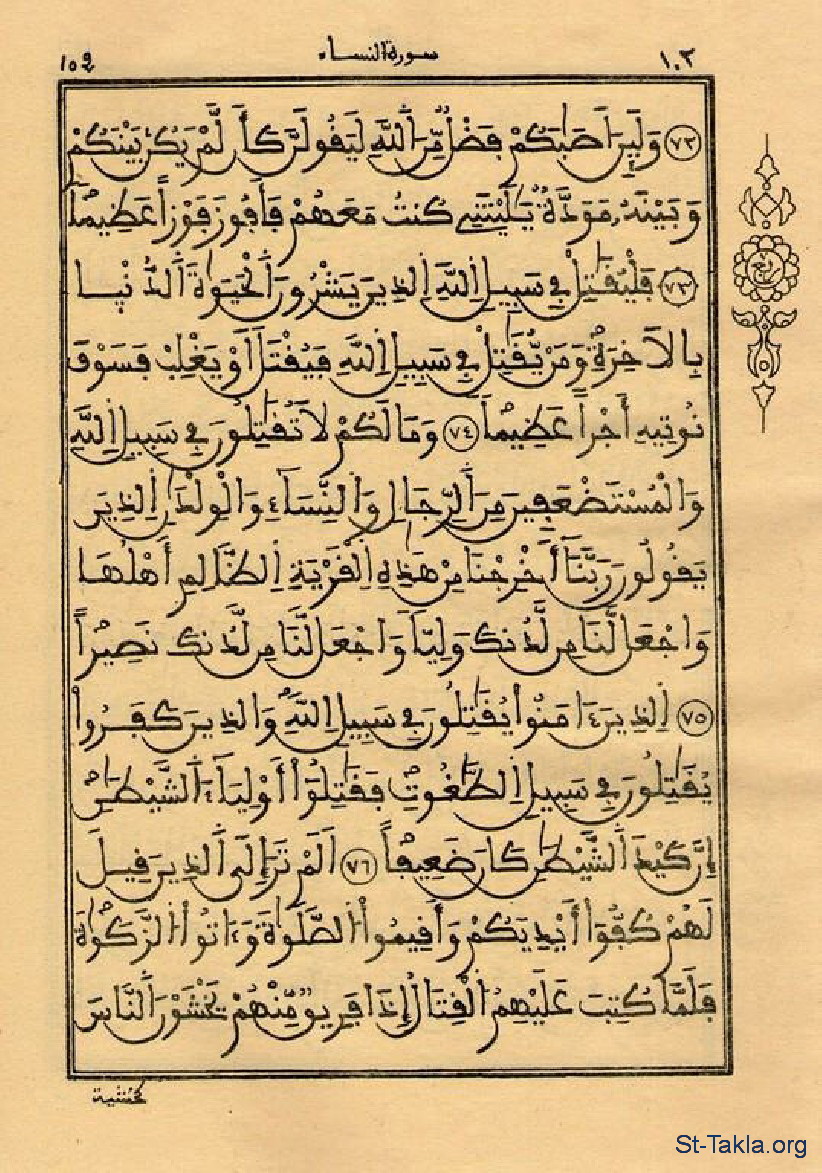 ١٠٣ سورة النساء ١٥٩
٧٢ وَلَئِنَ اَصَٰبَكُمْ فَضْلٞ مِّنَ اَ۬للَّهِ لَيَقُولَنَّ كَأَن لَّمْ يَكُنۢ بَيْنَكُمْ
وَبَيْنَهُۥ مَوَدَّةٞ يَٰلَيْتَنِے كُنتُ مَعَهُمْ فَأَفُوزَ فَوْزاً عَظِيماٗ
٧٣ فَلْيُقَٰتِلْ فِے سَبِيلِ اِ۬للَّهِ اِ۬لذِينَ يَشْرُونَ اَ۬لْحَيَوٰةَ اَ۬لدُّنْيا
بِالَاخِرَةِۖ وَمَنْ يُّقَٰتِلْ فِے سَبِيلِ اِ۬للَّهِ فَيُقْتَلَ اَوْ يَغْلِبْ فَسَوْفَ
نُوتِيهِ أَجْراً عَظِيماٗ ٧٤ وَمَا لَكُمْ لَا تُقَٰتِلُونَ فِے سَبِيلِ اِ۬للَّهِ
وَالْمُسْتَضْعَفِينَ مِنَ اَ۬لرِّجَالِ وَالنِّسَآءِ وَالْوِلْدَٰنِ اِ۬لذِينَ
يَقُولُونَ رَبَّنَآ أَخْرِجْنَا مِنْ هَٰذِهِ اِ۬لْقَرْيَةِ اِ۬لظَّالِمِ أَهْلُهَا
وَاجْعَل لَّنَا مِن لَّدُنكَ وَلِيّاٗ وَاجْعَل لَّنَا مِن لَّدُنكَ نَصِيراًۖ
٧٥ اِ۬لذِينَ ءَامَنُواْ يُقَٰتِلُونَ فِے سَبِيلِ اِ۬للَّهِۖ وَالذِينَ كَفَرُواْ
يُقَٰتِلُونَ فِے سَبِيلِ اِ۬لطَّٰغُوتِ فَقَٰتِلُوٓاْ أَوْلِيَآءَ اَ۬لشَّيْطَٰنِۖ
إِنَّ كَيْدَ اَ۬لشَّيْطَٰنِ كَانَ ضَعِيفاًۖ ٧٦ اَلَمْ تَرَ إِلَى اَ۬لذِينَ قِيلَ
لَهُمْ كُفُّوٓاْ أَيْدِيَكُمْ وَأَقِيمُواْ اُ۬لصَّلَوٰةَ وَءَاتُواْ اُ۬لزَّكَوٰةَ
فَلَمَّا كُتِبَ عَلَيْهِمُ اُ۬لْقِتَالُ إِذَا فَرِيقٞ مِّنْهُمْ يَخْشَوْنَ اَ۬لنَّاسَ
كخشية
ربع
St-Takla.org